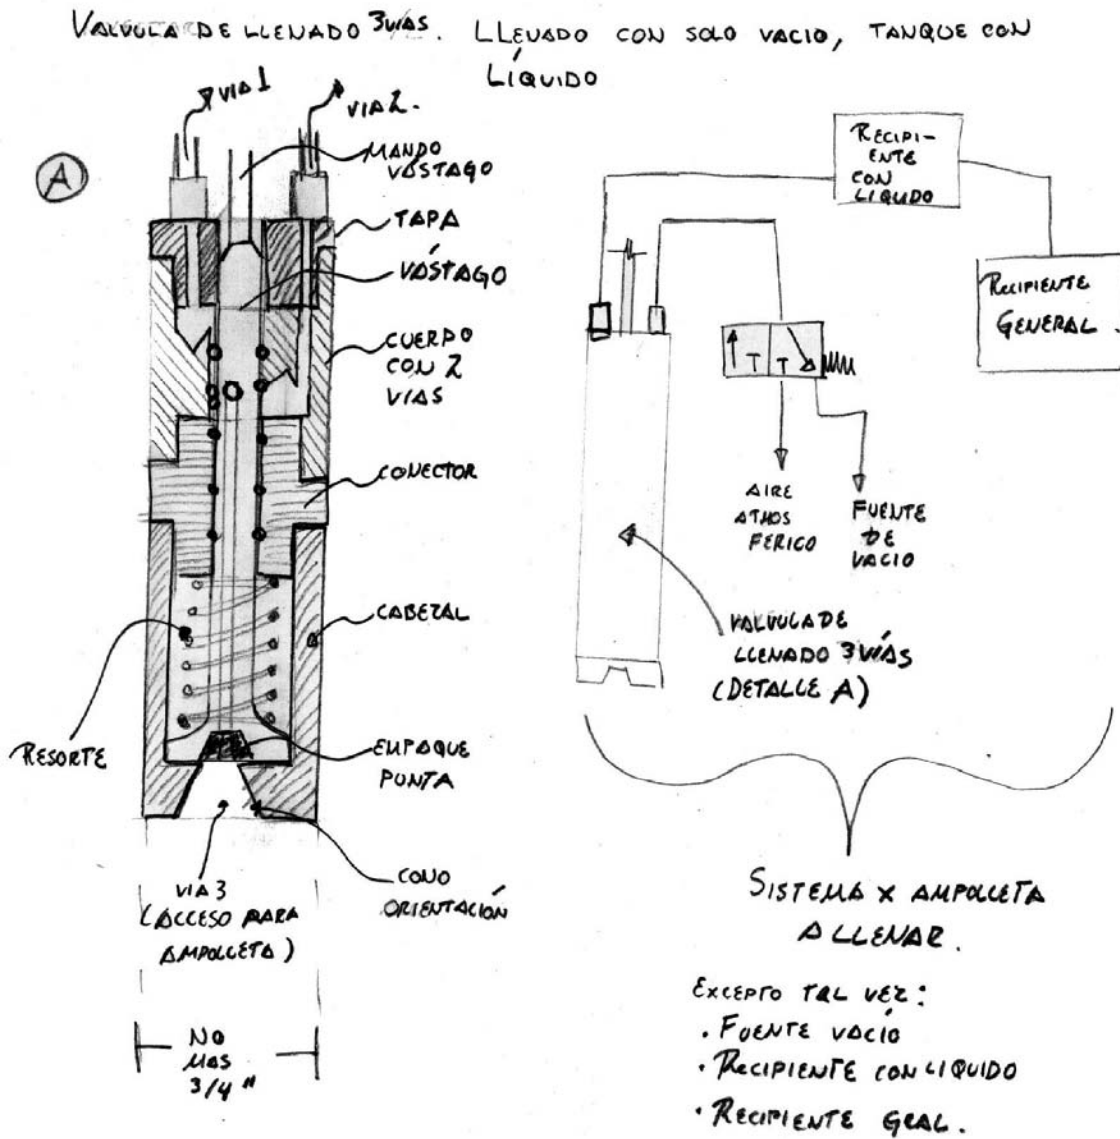 VALVULA DE LLENADO 3 VIAS. LLENADO CON SOLO VACIO, TANQUE CON
LÍQUIDO
VIA 1
VIA 2.
A
MANDO
VÁSTAGO
TAPA
VÁSTAGO
CUERPO
CON 2
VIAS
CONECTOR
CABEZAL
RESORTE
EMPAQUE
PUNTA
VIA 3
(ACCESO PARA
AMPOLLETA)
CONO
ORIENTACIÓN
NO
MAS
3/4"
RECIPI-
ENTE
CON
LIQUDO
RECIPIENTE
GENERAL.
T T
AIRE
ATMOS
FERICO
FUENTE
DE
VACIO
VALVULA DE
LLENADO 3 VÍAS
(DETALLE A)
SISTEMA X AMPOLLETA
A LLENAR.
EXCEPTO TAL VEZ:
· FUENTE VACÍO
· RECIPIENTE CON LIQUIDO
· RECIPIENTE GRAL.